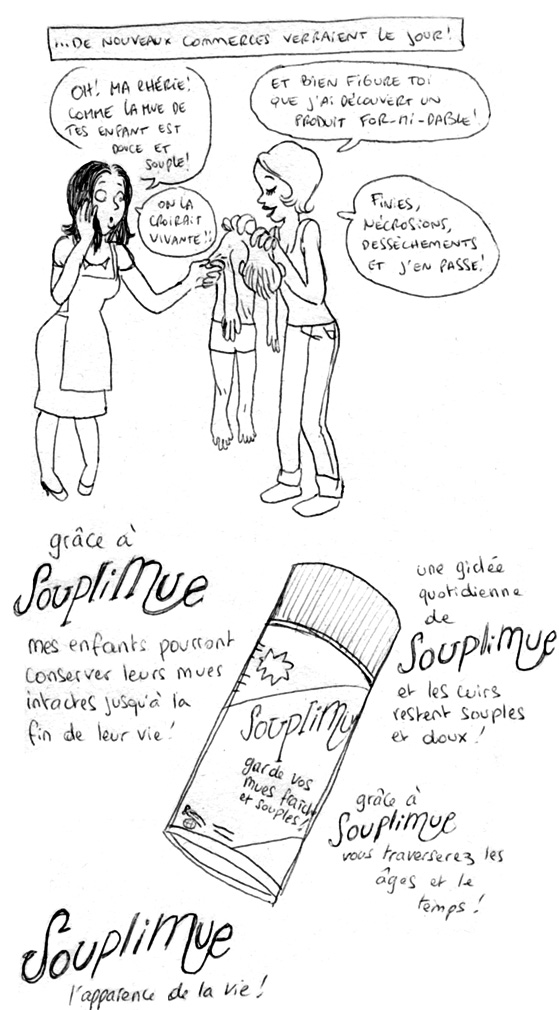 ...DE NOUVEAUX COMMERCES VERRAIENT LE JOUR!
OH! MA CHÉRIE!
COMME LA MUE DE
TES ENFANT EST
DOUCE ET
SOUPLE!
ET BIEN FIGURE TOI
QUE J'AI DÉCOUVERT UN
PRODUIT FOR-MI-DABLE!
ON LA
CROIRAIT
VIVANTE!!
FINIES,
NÉCROSIONS,
DESSÈCHEMENTS
ET J'EN PASSE!
grâce à
Souplimue
mes enfants pourront
conserver leurs mues
intactes jusqu'à la
fin de leur vie!
une giclée
quotidienne
de
Souplimue
et les cuirs
restent souples
et doux!
Souplimu
garde vos
mues fraîch
et souples!
grâce à
Souplimue
vous traverserez les
âges et le
temps!
Souplimue
l'apparence de la vie!